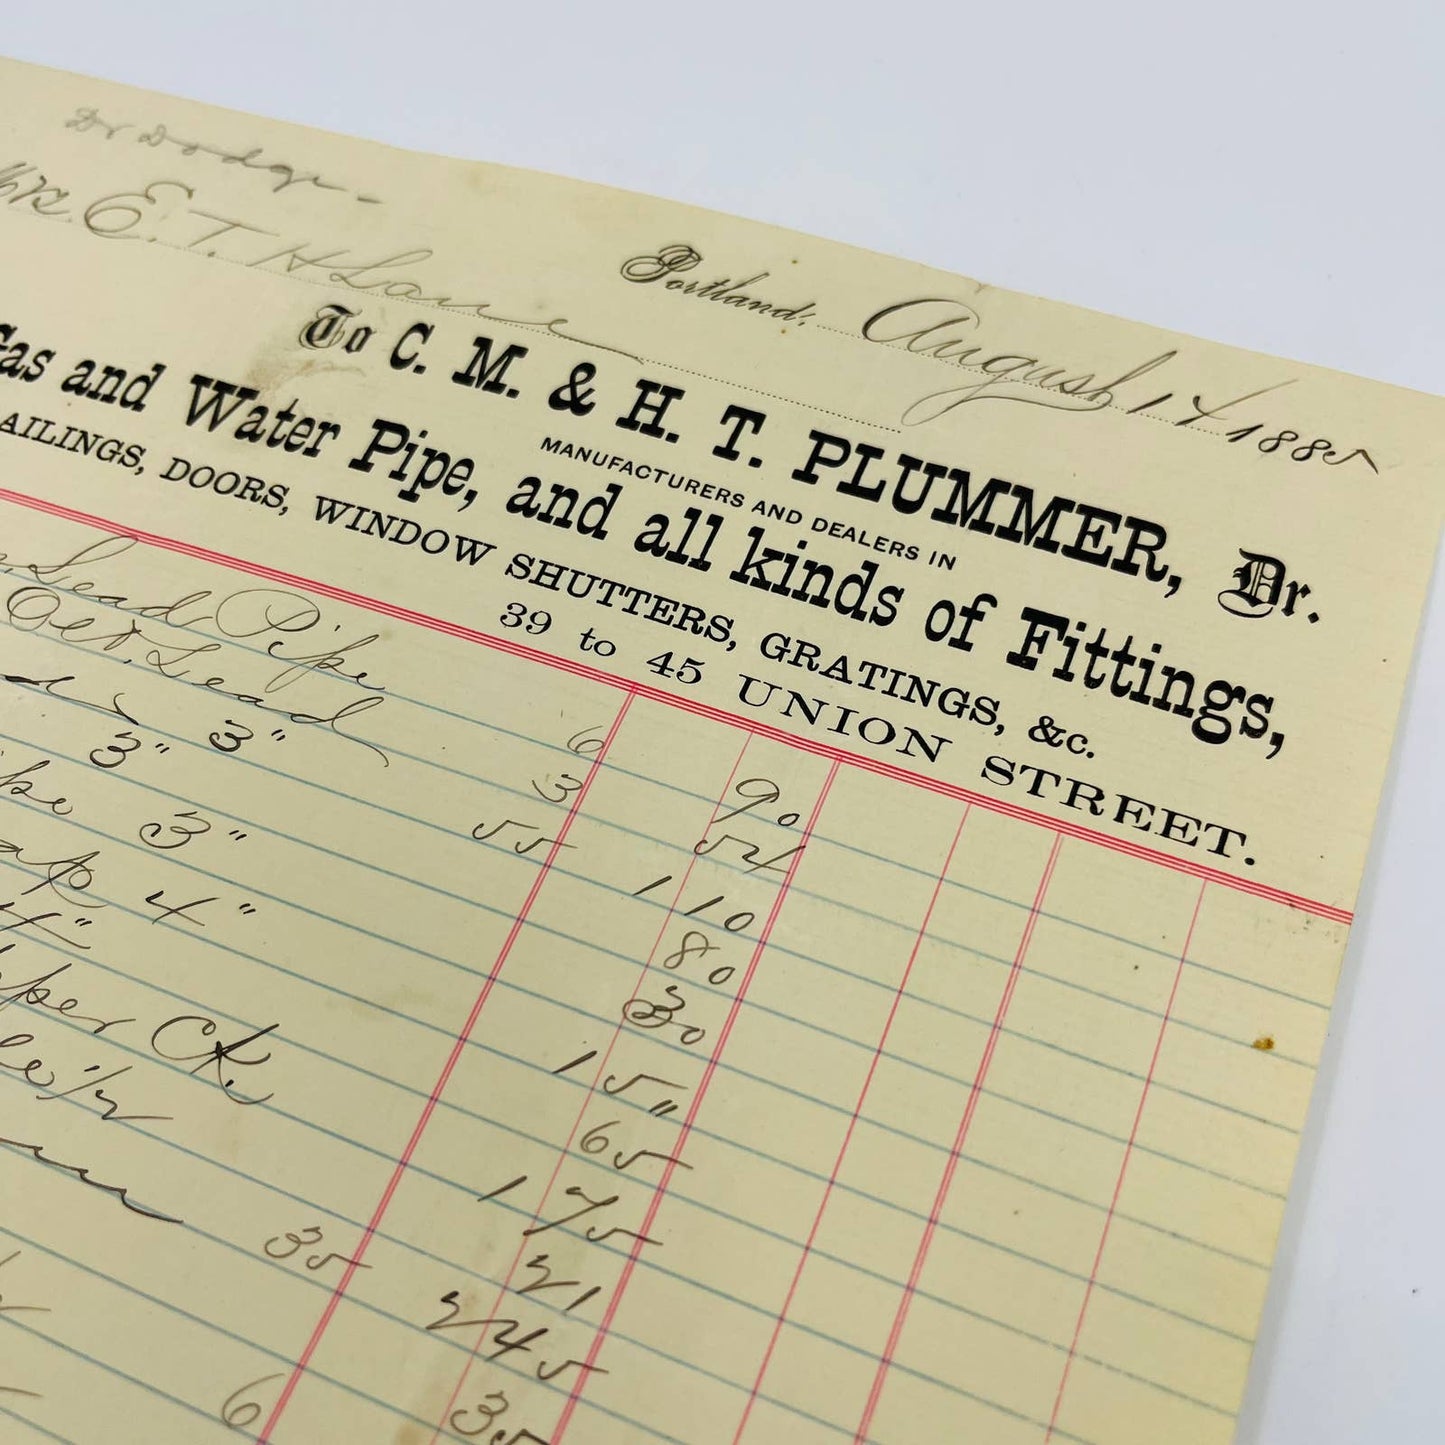 Dr Dodge
E. T.
Portland, August 14 1885
To C. M. & H. T. PLUMMER, Dr.
MANUFACTURERS AND DEALERS IN
Gas and Water Pipe, and all kinds of Fittings,
AILINGS, DOORS, WINDOW SHUTTERS, GRATINGS, &c.
39 to 45 UNION STREET.
Lead Pipe 6 90
Lead 3 54
3" 55 1 10
3" 80
3" 30
4" 15"
4" 65
per CK. 1 75
1/2 21
35 2 45
6 35